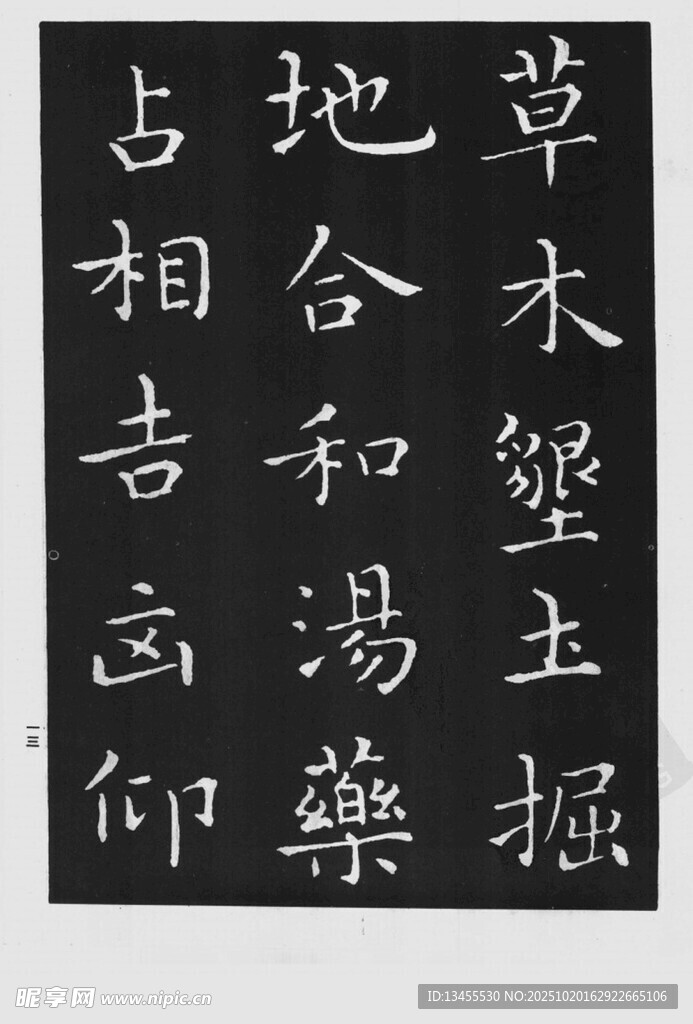 草木墾土掘
地合和湯藥
占相吉凶仰
一三
昵享网 www.nipic.cn
ID:13455530 NO:20251020162922665106